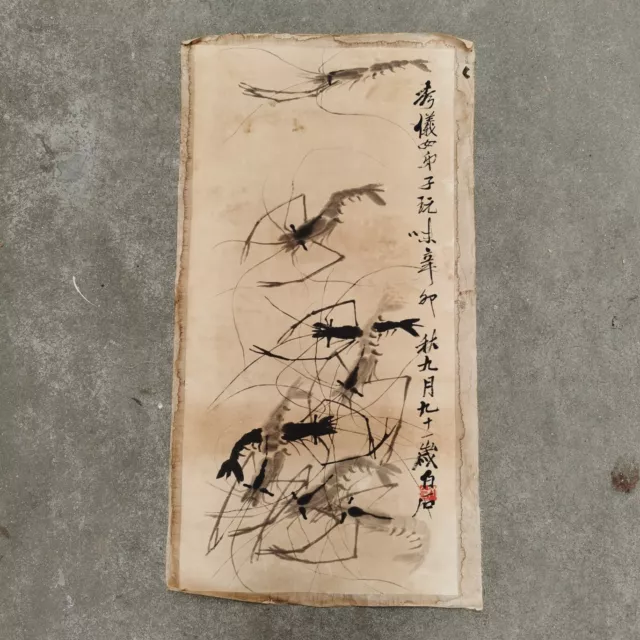 孝儀女弟子玩味辛卯秋九月九十一歲白石